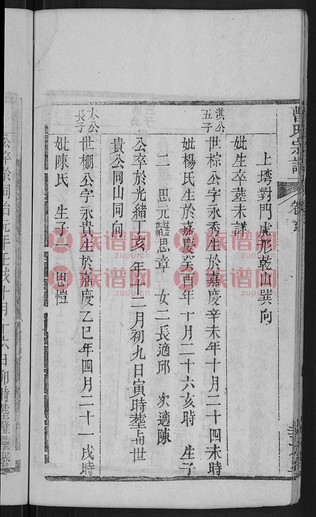 曹氏宗譜
上塆對門虎形乾山巽向
妣生卒塟未詳
漢公五子
世棕公字永秀生於嘉慶辛未年十月二十四未時
妣楊氏生於嘉慶癸酉年十月二十六亥時 生子
二 思元 思章 女二長適邱 次適陳
公卒於光緒丁亥年十二月初九日寅時塟 世
貴公同山同向
大公長子
世棚公字永貴生於嘉慶乙巳年四月二十一戌時
妣陳氏 生子二 思愷
族谱网
zupu.cn